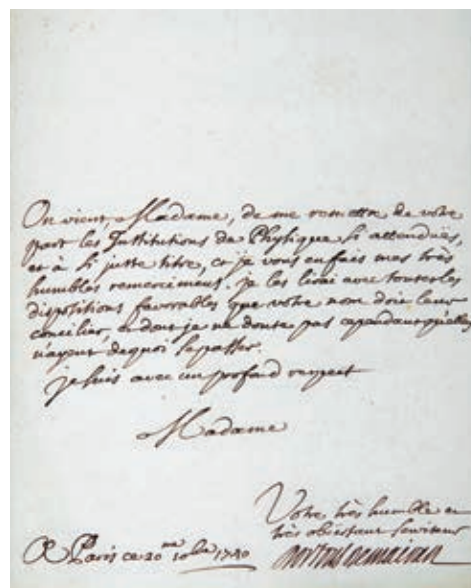 On vient, Madame, de me remettre de votre
part les Institutions de Physique si attendües,
et à si juste titre, et je vous en fais mes très
humbles remerciments. je les lirai avec toutes les
dispositions favorables que votre nom doit leur
concilier, et dont je ne doute pas cependant qu'elles
n'ayent dequoi se passer.
je suis avec un profond respect
Madame
Votre très humble et
très obéissant serviteur
A Paris ce 20me 10bre 1740